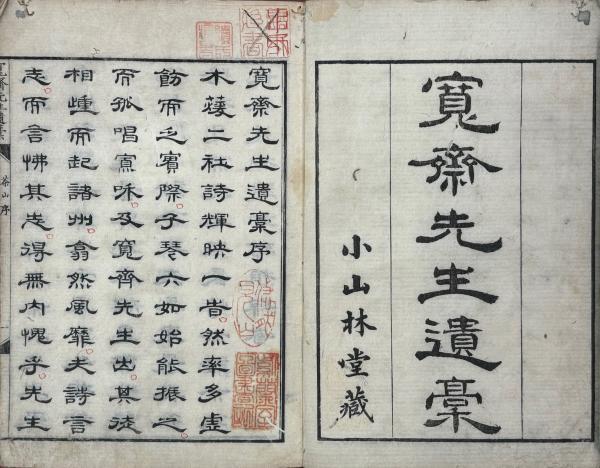 寬齋先生遺稾
小山林堂藏
寬齋先生遺稾序
木葼二社詩輝映一峕然率多虛
飭而乏實際。子琴六如始能振之。
而孤唱寡咊。及寬齊先生出。其徒
相踵而起。諸州翕然風靡。夫詩言
志。而言怫其志。得無内愧乎。先生
寬齋先生遺稾
茶山序